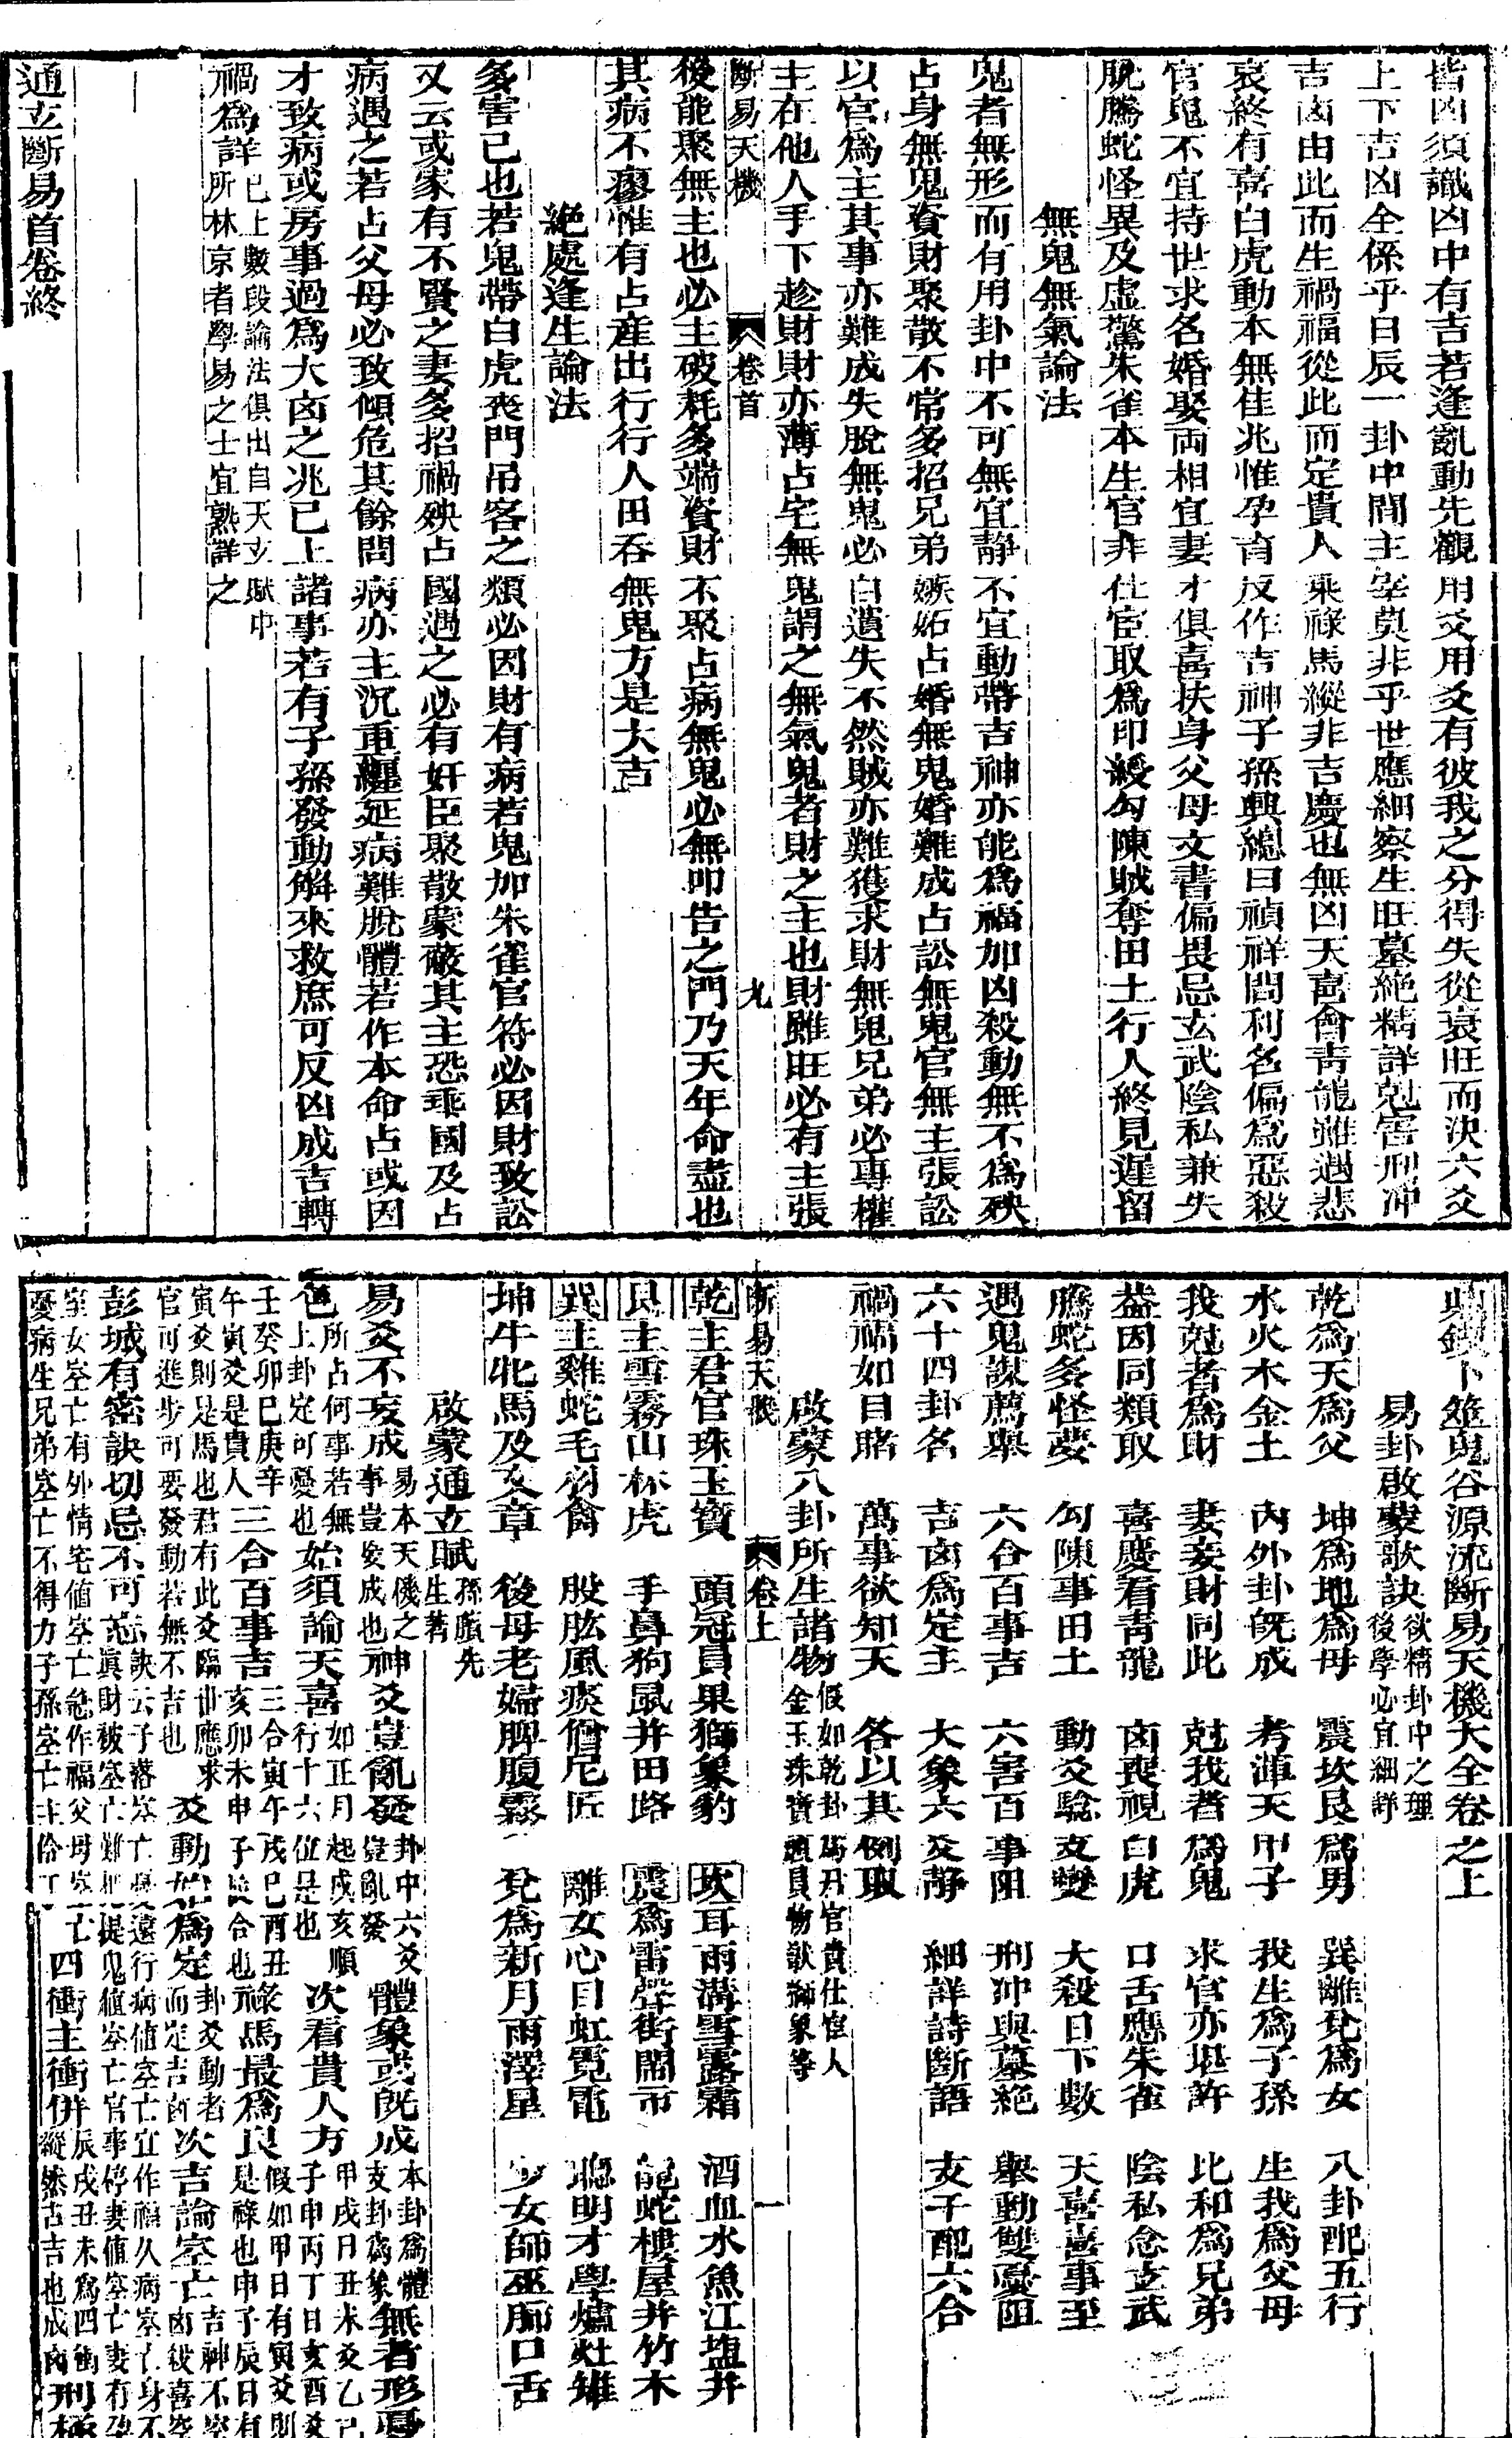 皆凶須識凶中有吉若逢亂動先觀用爻用爻有彼我之分得失從衰旺而決六爻
上下吉凶全係乎日辰一卦中間主宰莫非乎世應細察生旺墓絶精詳尅害刑冲
吉凶由此而生禍福從此而定貴人乘祿馬縱非吉慶也無凶天喜會靑龍雖遇悲
哀終有喜白虎動本無佳兆惟孕育反作吉神子孫興總曰禎祥問利名偏爲惡殺
官鬼不宜持世求名婚娶両相宜妻才俱喜扶身父母文書偏畏忌玄武陰私兼失
脫騰蛇怪異及虛驚朱雀本生官非仕宦取爲印綬勾陳賊奪田土行人終見遲留
無鬼無氣論法
鬼者無形而有用卦中不可無宜靜不宜動帶吉神亦能爲福加凶殺動無不爲殃
占身無鬼資財聚散不常多招兄弟嫉妬占婚無鬼婚難成占訟無鬼官無主張訟
以官爲主其事亦難成失脫無鬼必自遺失不然賊亦難獲求財無鬼兄弟必專權
主在他人手下趁財財亦薄占宅無鬼謂之無氣鬼者財之主也財雖旺必有主張
斷易天機 卷首 九
後能聚無主也必主破耗多端資財不聚占病無鬼必無叩告之門乃天年命盡也
其病不瘳惟有占産出行行人田吞無鬼方是大吉
絶處逢生論法
多害己也若鬼帶白虎喪門吊客之類必因財有病若鬼加朱雀官符必因財致訟
又云或家有不賢之妻多招禍殃占國遇之必有奸臣聚散蒙蔽其主恐乖國及占
病遇之若占父母必致傾危其餘問病亦主沉重纏延病難脫體若作本命占或因
才致病或房事過爲大凶之兆已上諸事若有子孫發動解來救庶可反凶成吉轉
禍爲詳已上數段論法俱出自天玄賦中
所林京者學易之士宜熟詳之
通玄斷易首卷終
鬼錢卜筮鬼谷源流斷易天機大全卷之上
易卦啟蒙歌訣欲精卦中之理
後學必宜細詳
乾爲天爲父 坤爲地爲母 震坎艮爲男 巽離兌爲女 八卦配五行
水火木金土 內外卦旣成 考渾天甲子 我生爲子孫 生我爲父母
我尅者爲財 妻妾財同此 尅我者爲鬼 求官亦堪許 比和爲兄弟
葢因同類取 喜慶看靑龍 凶喪視白虎 口舌應朱雀 陰私念玄武
騰蛇多怪夢 勾陳事田土 動爻驗支變 大殺日下數 天喜喜事至
遇鬼謀薦舉 六合百事吉 六害百事阻 刑冲與墓絶 舉動雙憂阻
六十四卦名 吉凶爲定主 大象六爻靜 細詳詩斷語 支干配六合
禍福如目賭 萬事欲知天 各以其例取
啟蒙八卦所生諸物假如乾卦爲君官貴仕宦人
金玉珠寶頭員物獸獅象等
斷易天機 卷上 一
乾主君官珠玉寶 頭冠員果獅象豹 坎耳雨溝雪露霜 酒血水魚江塩井
艮主雪霧山林虎 手鼻狗鼠幷田路 震爲雷聲街鬧市 龍蛇樓屋幷竹木
巽主雞蛇毛羽禽 股肱風痰僧尼匠 離女心目虹霓電 聰明才學爐灶雉
坤牛牝馬及文章 後母老婦脾腹霧 兌爲新月雨澤星 少女師巫肺口舌
啟蒙通玄賦孫臏先
生著
易爻不妄成易本天機之神
事豈妄成也爻豈亂發卦中六爻
豈亂發體象或旣成本卦爲體
支卦爲象無者形憂
色所占何事若無
上卦定可憂也始須論天喜如正月起戌亥順
行十六位是也次看貴人方甲戌日丑未爻乙己
子申丙丁日亥酉爻
壬癸卯巳庚辛
午寅爻是貴人三合百事吉三合寅午戌巳酉丑
亥卯未申子辰合也祿馬最爲良假如甲日有寅爻則
是祿也申子辰日有
寅爻則是馬也君有此爻臨世應求
官可進步可要發動若無不吉也爻動始爲定卦爻動者
而定吉凶次吉論空亡吉神不空
凶殺喜空
彭城有密訣切忌不可忘訣云子落空亡莫遠行病値空亡宜作福久病空亡身不
眞財被空亡難把捉鬼値空亡官事停妻値空亡妻有孕
室女空亡有外情宅値空亡急作福父母空亡
憂病生兄弟空亡不得力子孫空亡主伶丁四衝主衝併辰戌丑未爲四衝
縱然占吉也成凶刑極